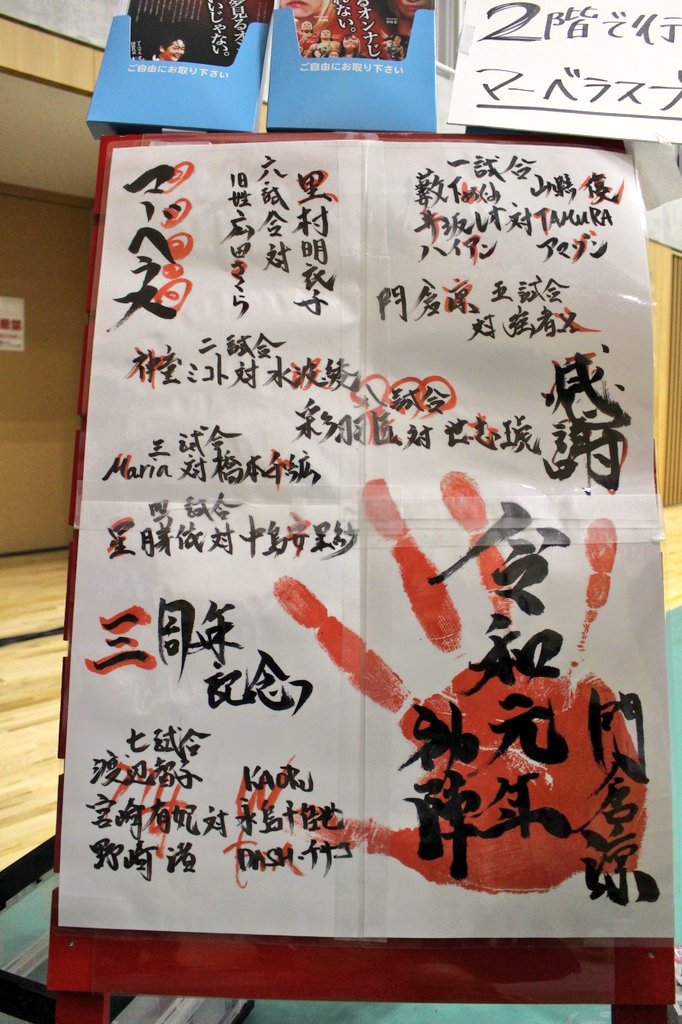 いじゃない。
ご自由にお取り下さい
オンナじ
れない。
ご自由にお取り下さい
2階で行
マーベラスプ
マーベラス
里村明衣子
六試合対
旧姓広田さくら
一試合
藪下めぐみ 山縣優
井坂レオ 対 TAMURA
ハイアン アマゾン
門倉凛 五試合
対 強者X
二試合
神童ミコト対水波綾
八試合
彩羽匠 対 世志琥
感謝
三試合
Maria 対 橋本千紘
四試合
星月芽依対中島安里紗
三周年
記念
令和元年
初陣
門倉凛
七試合
渡辺智子 KAORU
宮崎有妃 対 永島千佳世
野崎渚 DASH・チサコ